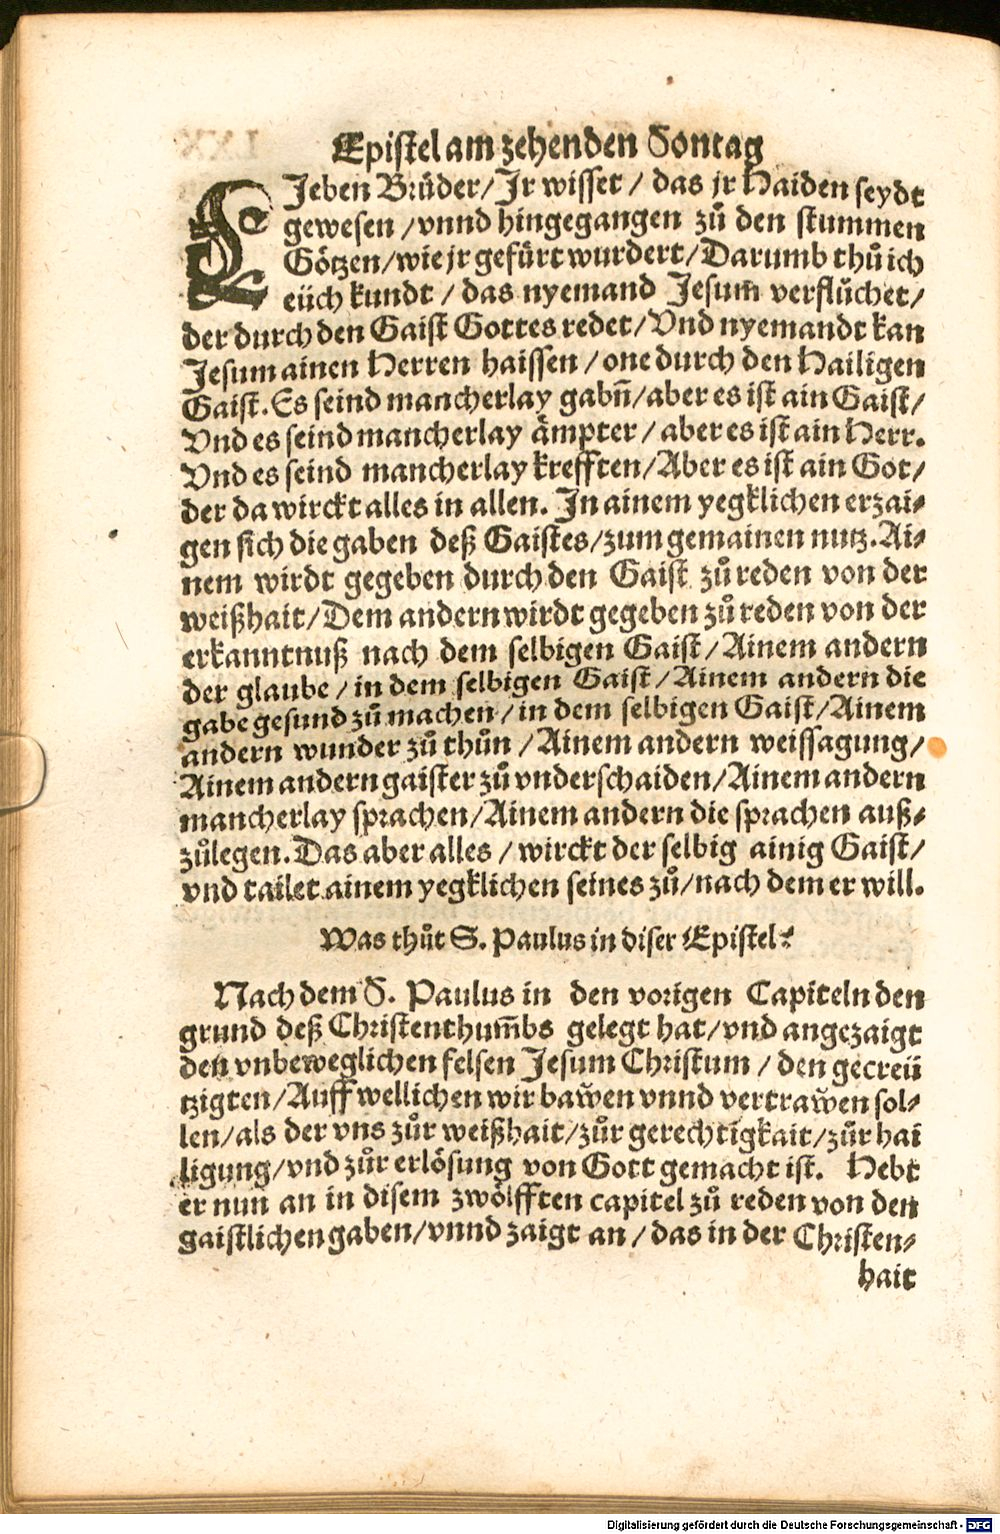 Epistel am zehenden Sontag
LIeben Brüder/ Jr wisset / das jr Haiden seydt
gewesen / vnnd hingegangen zů den stummen
Götzen/ wie jr gefürt wurdert/ Darumb thů ich
eüch kundt / das nyemand Jesum̃ verflůchet/
der durch den Gaist Gottes redet/ Vnd nyemandt kan
Jesum ainen Herren haissen / one durch den Hailigen
Gaist. Es seind mancherlay gabn̄/ aber es ist ain Gaist/
Vnd es seind mancherlay ämpter / aber es ist ain Herr.
Vnd es seind mancherlay krefften/ Aber es ist ain Got/
der da wirckt alles in allen. In ainem yegklichen erzai⸗
gen sich die gaben deß Gaistes/ zum gemainen nutz. Ai⸗
nem wirdt gegeben durch den Gaist zů reden von der
weißhait/ Dem andern wirdt gegeben zů reden von der
erkanntnuß nach dem selbigen Gaist/ Ainem andern
der glaube / in dem selbigen Gaist/ Ainem andern die
gabe gesund zů machen/ in dem selbigen Gaist/ Ainem
andern wunder zů thůn / Ainem andern weissagung/
Ainem andern gaister zů vnderschaiden/ Ainem andern
mancherlay sprachen/ Ainem andern die sprachen auß⸗
zůlegen. Das aber alles / wirckt der selbig ainig Gaist/
vnd tailet ainem yegklichen seines zů/ nach dem er will.
Was thůt S. Paulus in diser Epistel?
Nach dem S. Paulus in den vorigen Capiteln den
grund deß Christenthum̃bs gelegt hat/ vnd angezaigt
den vnbeweglichen felsen Jesum Christum / den gecreü
tzigten/ Auff wellichen wir baw̌en vnnd vertraw̌en sol⸗
len/ als der vns zůr weißhait/ zůr gerechtigkait/ zůr hai
ligung/ vnd zůr erlösung von Gott gemacht ist. Hebt
er nun an in disem zwölfften capitel zů reden von den
gaistlichen gaben/ vnnd zaigt an / das in der Christen⸗
hait
Digitalisierung gefördert durch die Deutsche Forschungsgemeinschaft - DFG